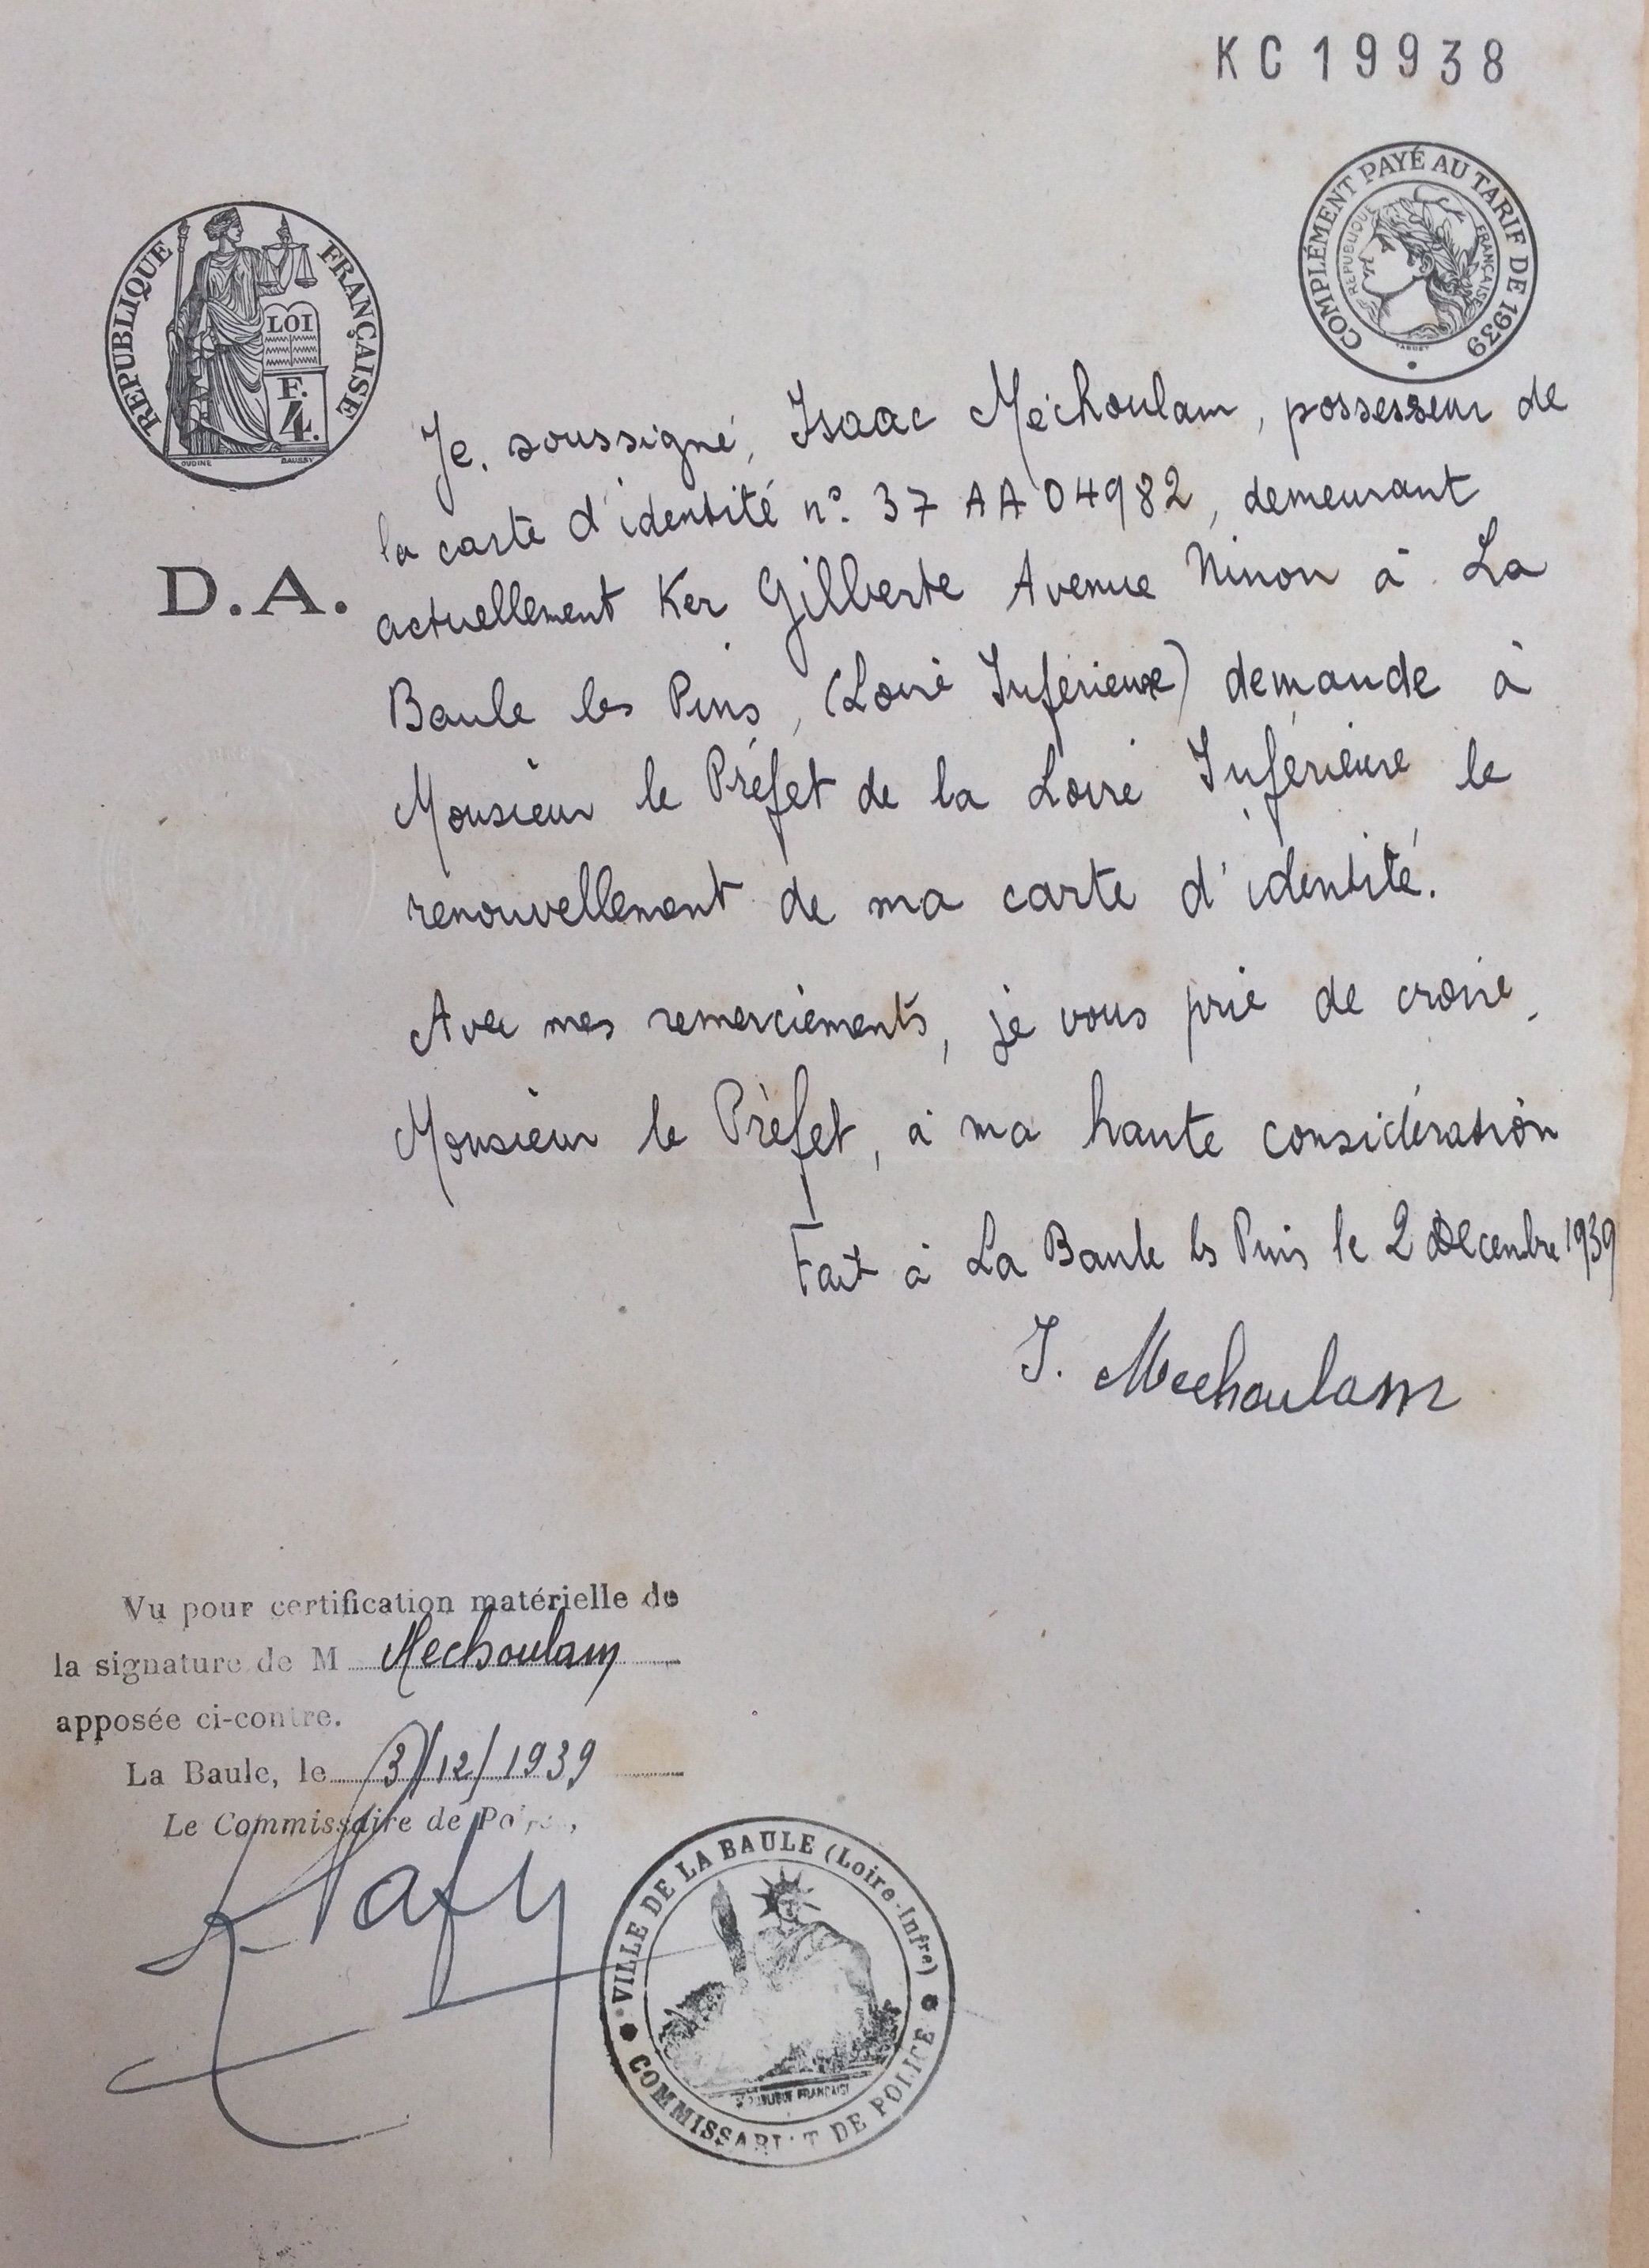 KC19938
REPUBLIQUE FRANÇAISE
LOI
F.
4.
OUDINE
COMPLÉMENT PAYÉ AU TARIF DE 1939
REPUBLIQUE FRANÇAISE
D.A.
Je, soussigné, Isaac Méchoulam, possesseur de
la carte d'identité n° 37 AA 04982, demeurant
actuellement Ker Gilberte Avenue Ninon à La
Baule les Pins, (Loire Inférieure) demande à
Monsieur le Préfet de la Loire Inférieure le
renouvellement de ma carte d'identité.
Avec mes remerciements, je vous prie de croire,
Monsieur le Préfet, à ma haute considération
Fait à La Baule les Pins le 2 Décembre 1939
I. Mechoulam
Vu pour certification matérielle de
la signature de M Mechoulam
apposée ci-contre.
La Baule, le 3/12/1939
Le Commissaire de Police,
VILLE DE LA BAULE (Loire-Infre)
REPUBLIQUE FRANÇAISE
COMMISSARIAT DE POLICE